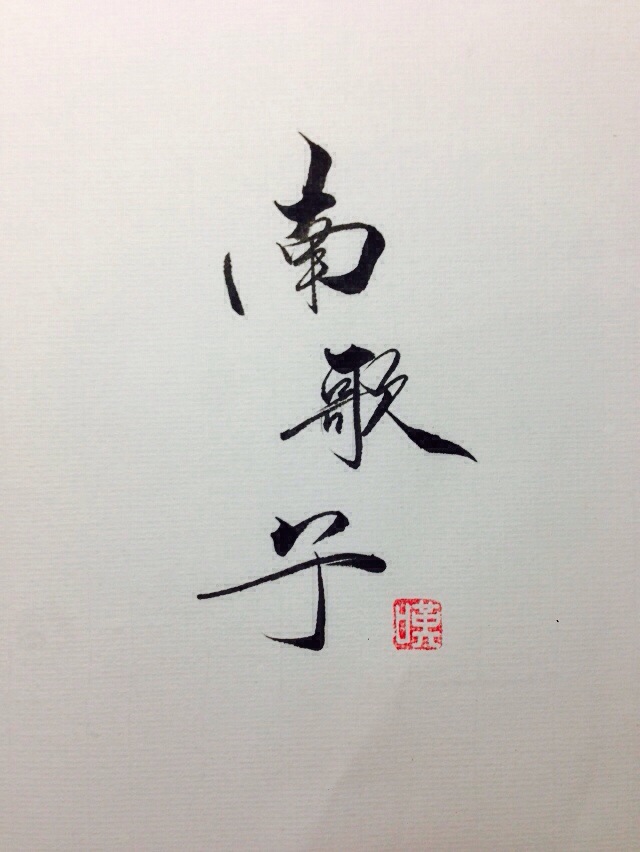 南歌子